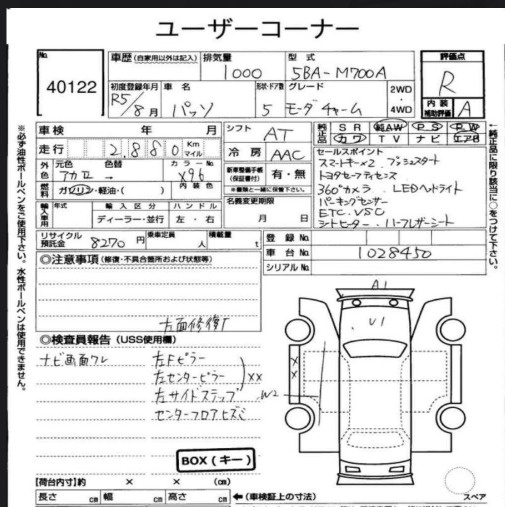 ユーザーコーナー
No.
40122
車歴(自家用以外は記入) 排気量 型式
1000 5BA-M700A
評価点
R
初度登録年月 車名 形状・ドア数 グレード 2WD・4WD
R5/8月 パッソ 5 モーダチャーム
内装補助評価 A
※必ず油性ボールペンをご使用下さい。水性ボールペンは使用できません。
車検 年 月 シフト AT
純正品 SR 純AW PS PW
カワ TV ナビ エアB
↑純正品に限り該当に○をつけて下さい。
走行 2880 Km マイル 冷房 AAC
セールスポイント
スマートキー×2. プッシュスタート
トヨタセーフティセンス
360°カメラ. LEDヘッドライト
パーキングセンサー
ETC. VSC
シートヒーター. ハーフレザーシート
外色 元色 色替 カラーNo.
アカII → X96
新車整備手帳(保証書付) 有・無
※書類と一緒に保管下さい。
燃料 ガソリン・軽油・( ) 内装色
名義変更期限
月 日
輸入車用 年式 輸入区分 ハンドル
ディーラー・並行 左・右
リサイクル預託金 8270円 乗車定員 人 積載量 t
登録No.
車台No. 1028450
シリアルNo.
◎注意事項(修復・不具合箇所および状態等)
◎検査員報告(USS使用欄)
ナビ画面ワレ
左Fピラー
左センターピラー
左サイドステップ
XX
センターフロアヒズミ
BOX(キー)
A1
U1
XX
W2
スペア
【荷台内寸】約 × × (cm)
長さ cm 幅 cm 高さ cm ←(車検証上の寸法)